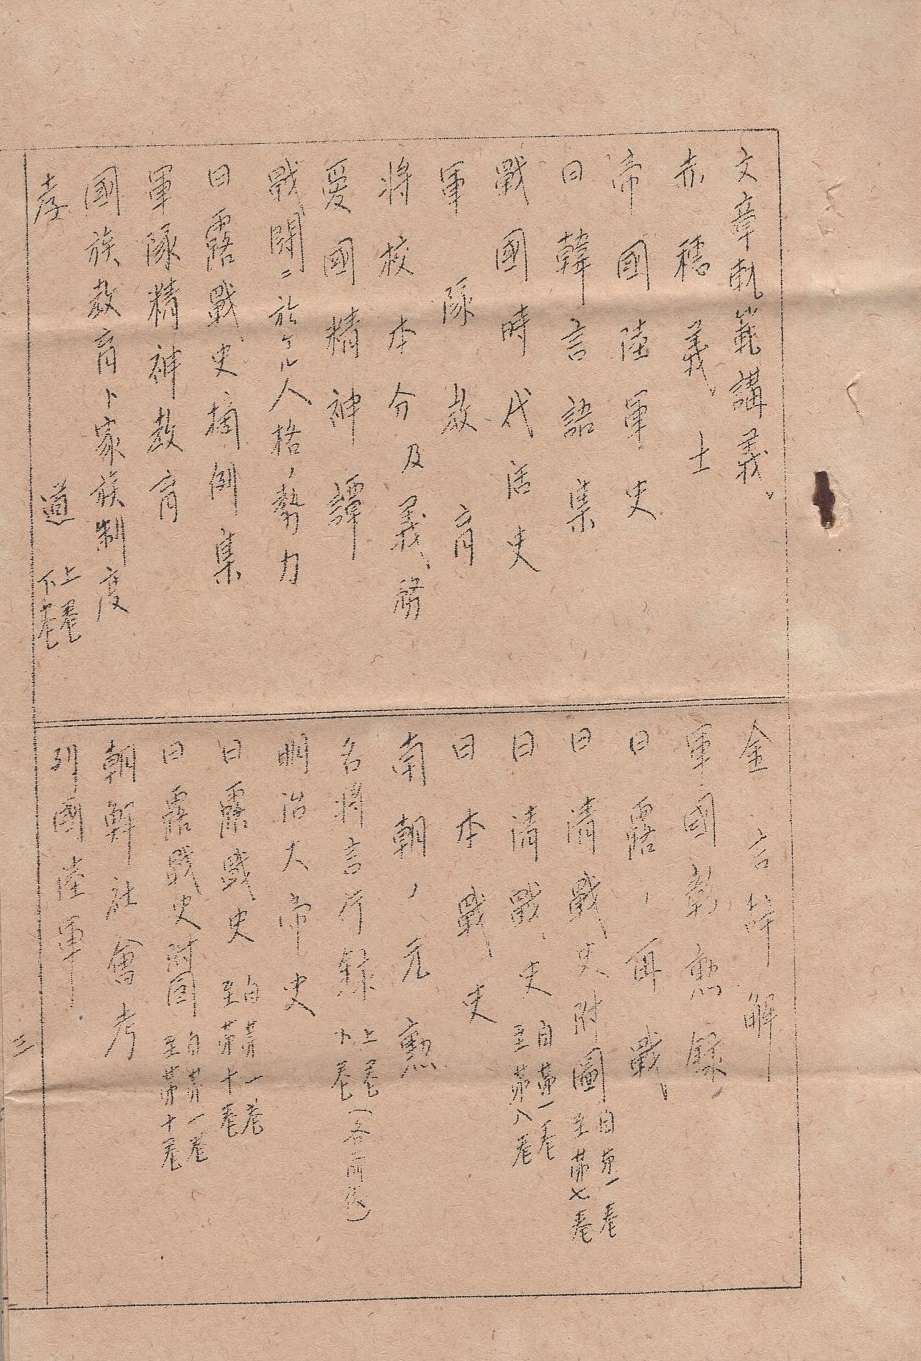 文章軌範講義
赤穗義士
帝國陸軍史
日韓言語集
戰國時代活史
軍隊教育
將校本分及義務
愛國精神譚
戰鬪ニ於ケル人格ノ勢力
日露戰史摘例集
軍隊精神教育
國族教育ト家族制度
孝道 上卷 下卷
金言詳解
軍國彰勲錄
日露ノ再戰
日清戰史附圖 自第一卷 至第七卷
日清戰史 自第一卷 至第八卷
日本戰史
南朝ノ元勲
名將言行錄 上卷 下卷(各前後)
明治大帝史
日露戰史 自第一卷 至第十卷
日露戰史附図 自第一卷 至第十卷
朝鮮社會考
列國陸軍
三